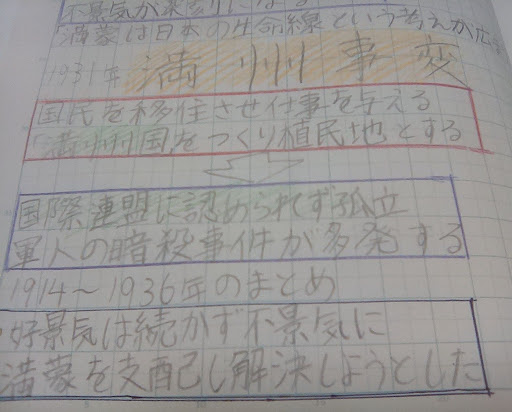 不景気が深刻になる
満蒙は日本の生命線という考えが広
1931年 満州事変
国民を移住させ仕事を与える
「満州国をつくり植民地とする
国際連盟に認められず孤立
軍人の暗殺事件が多発する
1914～1936年のまとめ
・好景気は続かず不景気に
満蒙を支配し解決しようとした